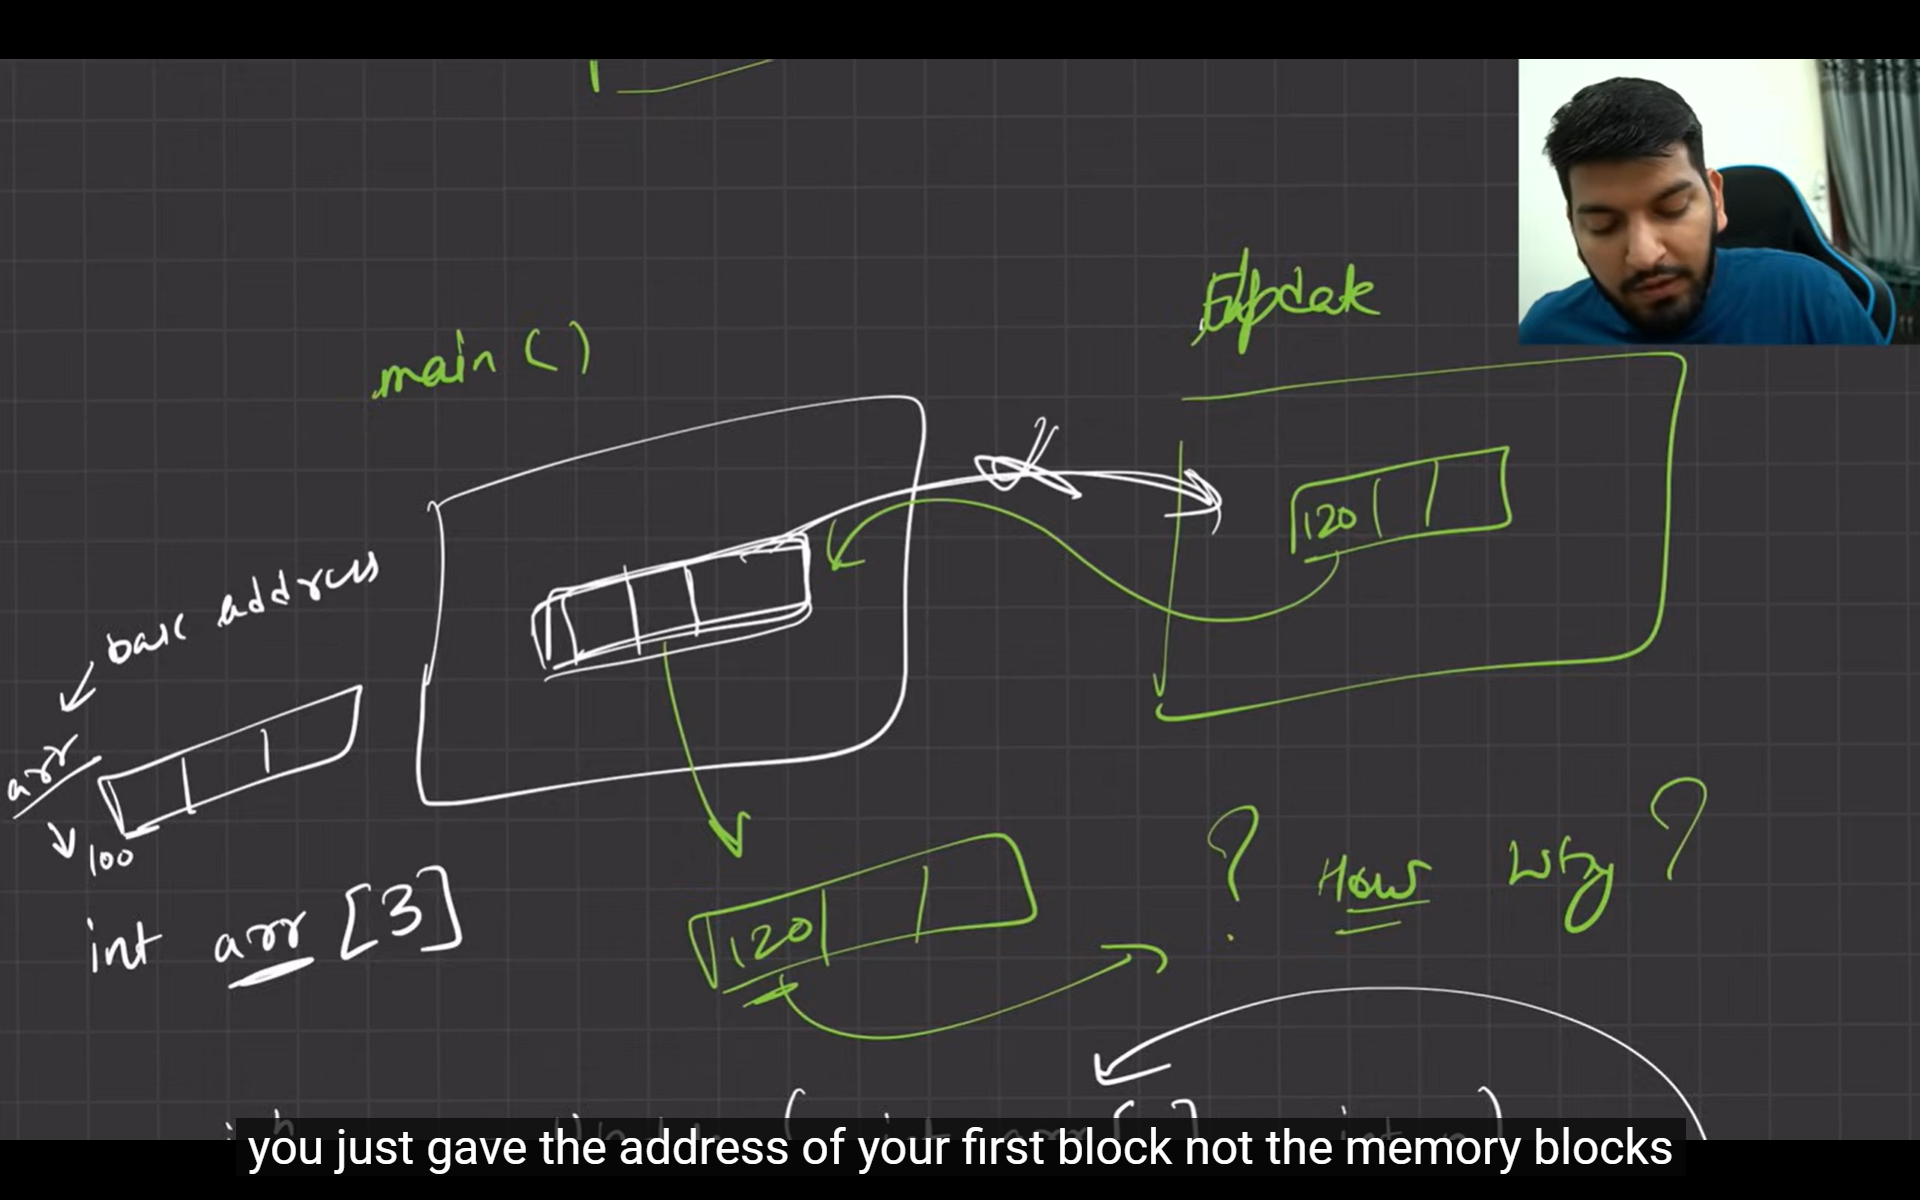 Update
main ( )
120
base address
arr
100
? How Why ?
int arr [3]
120
you just gave the address of your first block not the memory blocks